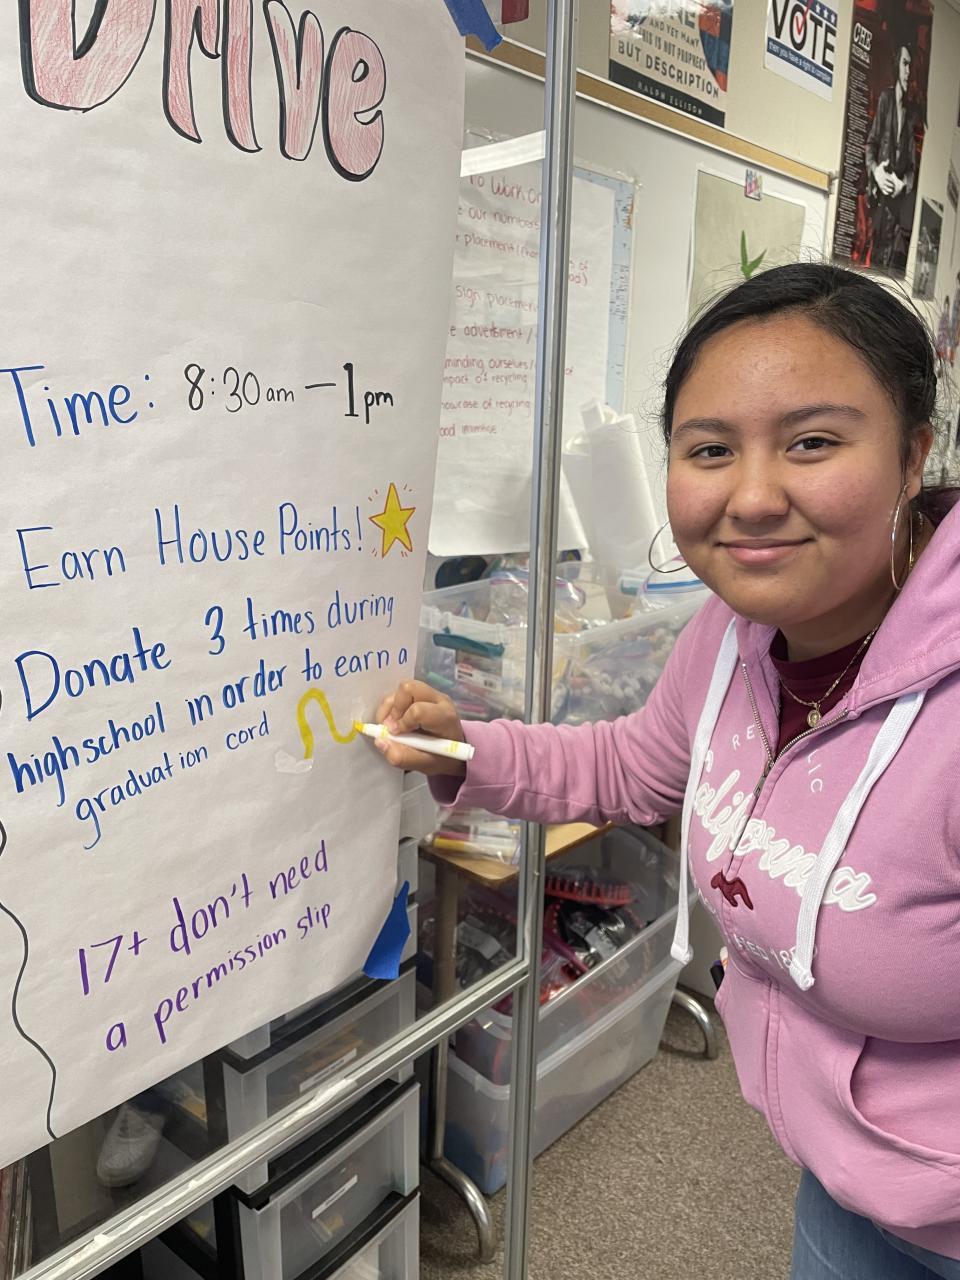 Drive
Time: 8:30am – 1pm
Earn House Points!
Donate 3 times during
highschool in order to earn a
graduation cord
17+ don't need
a permission slip
To Work on
our numbers
placement
sign placement
advertisment /
minding ourselves/
impact of recycling
howcase of recycling
AND YET MANY
THIS IS NOT PROPHECY
BUT DESCRIPTION
RALPH ELLISON
VOTE
CHE
California